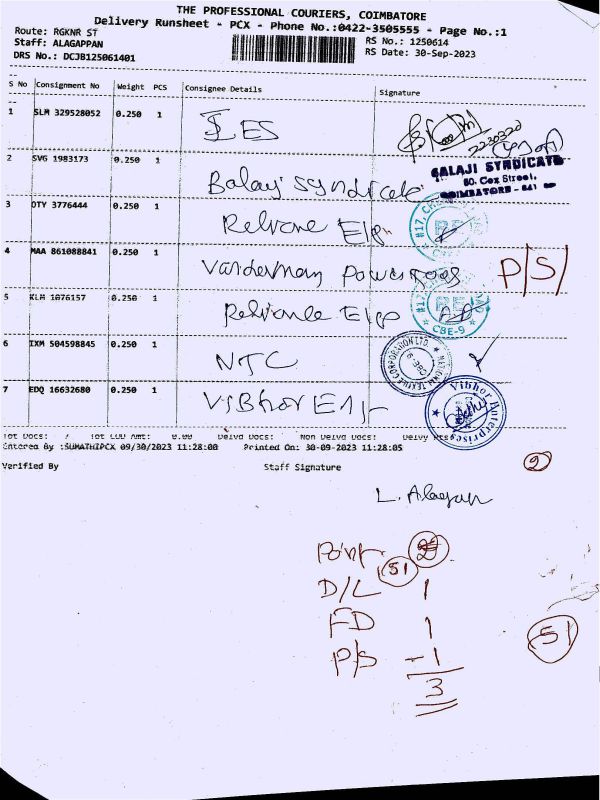 THE PROFESSIONAL COURIERS, COIMBATORE
Delivery Runsheet - PCX - Phone No.:0422-3505555 - Page No.:1
Route: RGKNR ST
RS No.: 1250614
Staff: ALAGAPPAN
RS Date: 30-Sep-2023
DRS No.: DCJB125061401
S No Consignment No Weight PCS Consignee Details Signature
1 SLM 329528052 0.250 1 IES
2230320
2 SVG 1983173 0.250 1 Balaji Syndicate
BALAJI SYNDICATE
80. Cox Street,
COIMBATORE - 641
3 OTY 3776444 0.250 1 Reliance E/p
4 MAA 861088841 0.250 1 P/S/
5 KLM 1076157 0.250 1 Reliance E/p
CBE-9
6 IXM 504598845 0.250 1 NTC
NATIONAL TEXTILE CORPORATION LTD.
7 EDQ 16632680 0.250 1 Vibhor E/p
Vibhor Enterprises
Tot Docs: 7 Tot COD Amt: 0.00 Delvd Docs: Non Delvd Docs: Delvy Pts
Entered By :SUMATHIPCX 09/30/2023 11:28:00 Printed On: 30-09-2023 11:28:05
Verified By Staff Signature
2
L. Alagappan
Point 2
51
D/L 1
FD 1
51
P/S 1
3